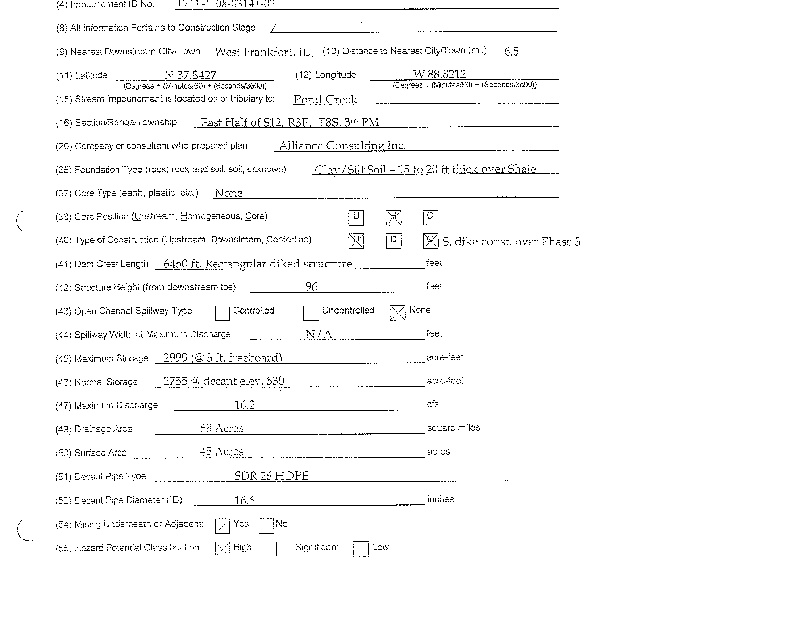 (4) Impoundment ID No.
(8) All Information Pertains to Construction Stage /
(9) Nearest Downstream City/Town West Frankfort, IL (10) Distance to Nearest City/Town (mi.) 6.5
(11) Latitude N 37.8427 (12) Longitude W 88.8212
(Degrees + (Minutes/60) + (Seconds/3600)) (Degrees + (Minutes/60) + (Seconds/3600))
(15) Stream Impoundment is located on or tributary to: Pond Creek
(16) Section/Range/Township East Half of S12, R3E, T8S, 3rd PM
Company or consultant who prepared plan Alliance Consulting Inc.
Foundation Type (rock, rock and soil, soil, unknown) Clay/Silt Soil – 15 to 20 ft thick over Shale
Core Type (earth, plastic, etc.) None
Core Position (Upstream, Homogeneous, Core) U H C
(40) Type of Construction (Upstream, Downstream, Centerline) U D C S. dike const. over Phase 3
(41) Dam Crest Length 6450 ft. Rectangular diked structure feet
(42) Structure Height (from downstream toe) 96 feet
(43) Open Channel Spillway Type Controlled Uncontrolled None
(44) Spillway Width at Maximum Discharge N/A feet
Maximum Storage 2999 (@ ft. freeboard) acre-feet
Normal Storage 2755 @ decant elev. 630 acre-feet
(47) Maximum Discharge 16.2 cfs
Drainage Area Acres square miles
Surface Area 45 Acres acres
(51) Decant Pipe Type SDR 26 HDPE
Decant Pipe Diameter (ID) 16.5 inches
(54) Mining Underneath or Adjacent: Yes No
Hazard Potential Classification High Significant Low